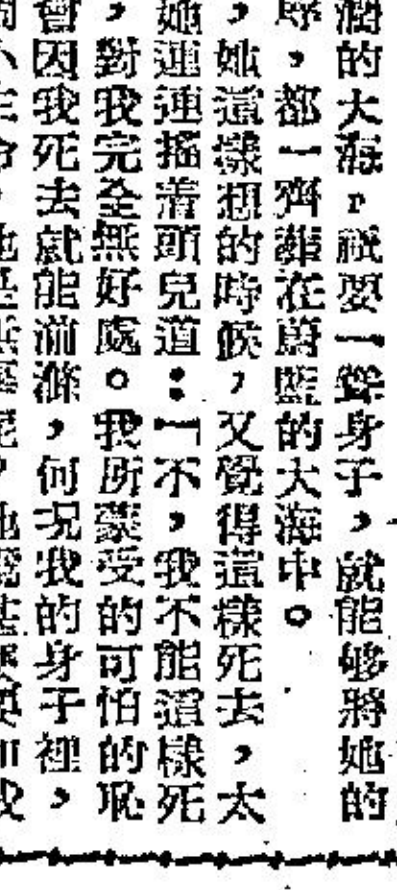 闊的大海，祇要一聳身子，就能够將她的
，都一齊葬在蔚藍的大海中。
，她這樣想的時候，又覺得這樣死去，太
她連連搖着頭兒道：「不，我不能這樣死
，對我完全無好處。我所蒙受的可怕的恥
會因我死去就能湔滌，何況我的身子裡，